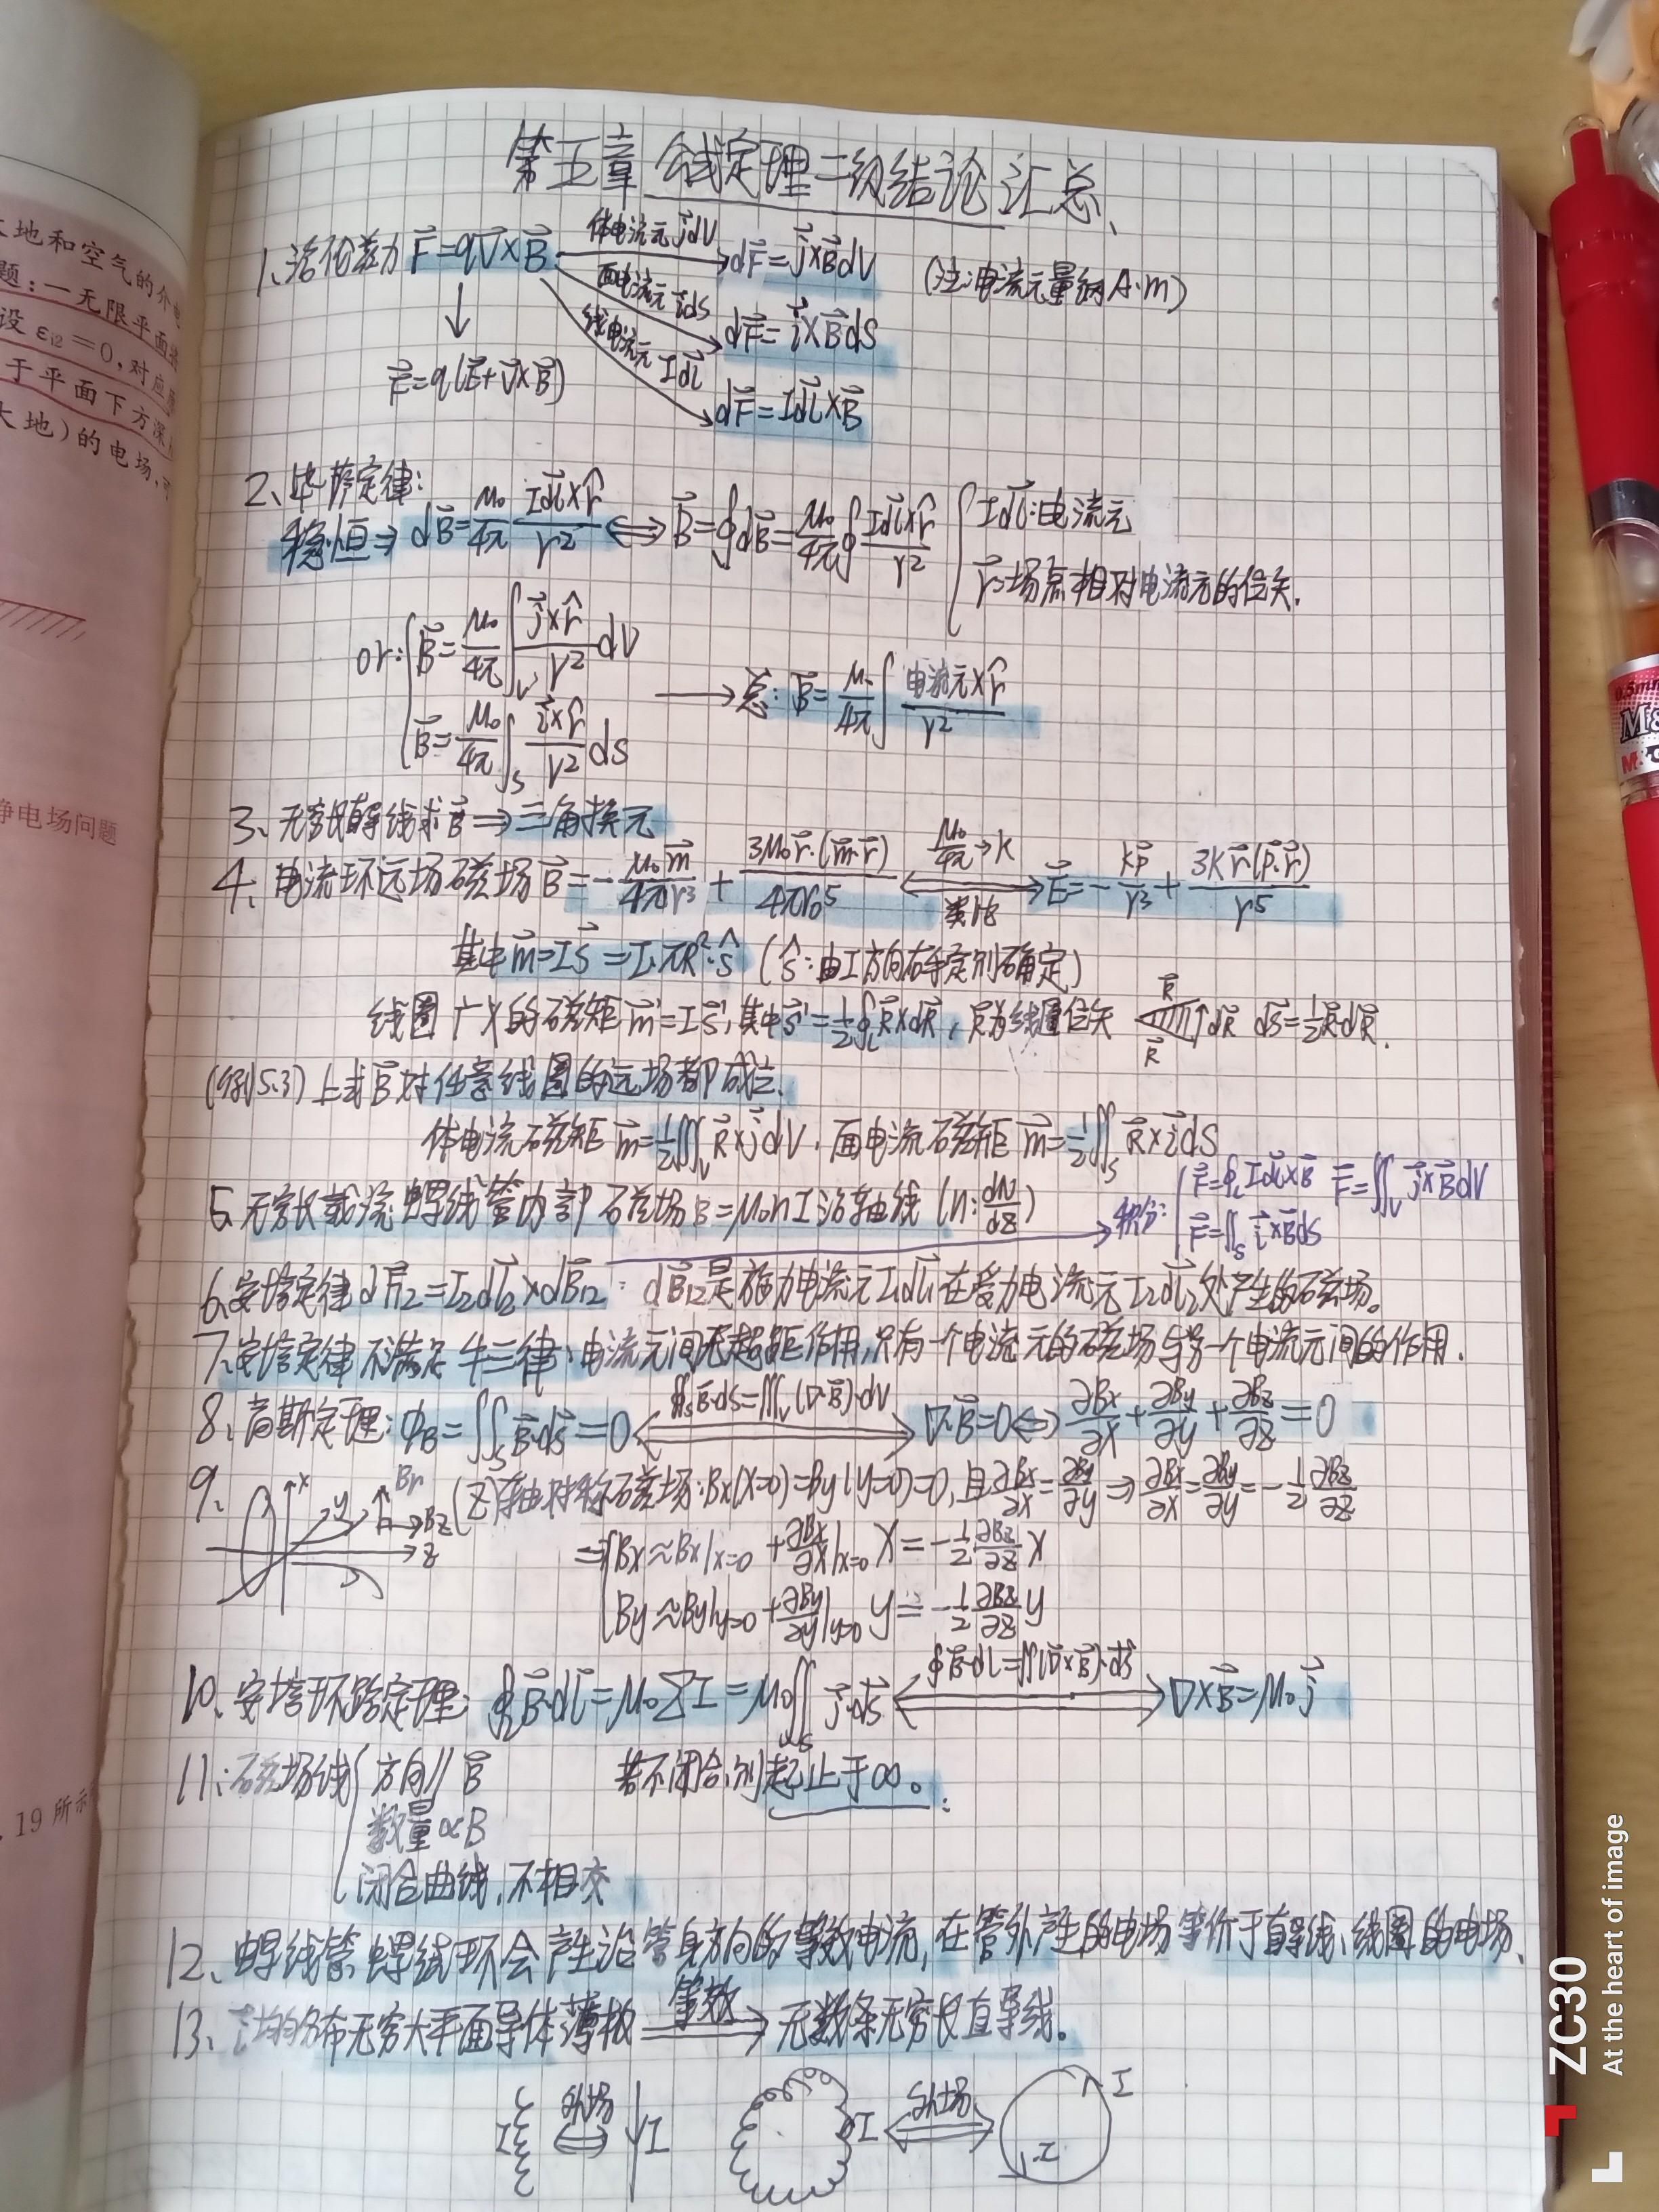 第五章 公式定理二级结论汇总、
1、洛伦兹力 F⃗=qv⃗×B⃗ 体电流元 j⃗dV → dF⃗=j⃗×B⃗dV (注:电流元量纲A·m)
面电流元 i⃗dS → dF⃗=i⃗×B⃗dS
线电流元 Idl⃗ → dF⃗=Idl⃗×B⃗
↓
F⃗=q(E⃗+v⃗×B⃗)
2、毕萨定律:
稳恒⇒ dB⃗=μ₀/4π Idl⃗×r̂/r² ⟺ B⃗=∮dB⃗=μ₀/4π∮Idl⃗×r̂/r² { Idl⃗:电流元
r⃗:场点相对电流元的位矢.
or:{ B⃗=μ₀/4π ∫_V j⃗×r̂/r² dV
B⃗=μ₀/4π ∫_S i⃗×r̂/r² dS
→ 总: B⃗=μ₀/4π ∫ 电流元×r̂/r²
3、无穷长直导线求B⃗⇒三角换元
4、电流环远场磁场B⃗=-μ₀m⃗/4πr³+3μ₀r⃗·(m⃗·r⃗)/4πr₀⁵ ⟺ μ₀/4π→k 类比 E⃗=-kp⃗/r³+3kr⃗(p⃗·r⃗)/r⁵
其中m⃗=IS⃗=I·πR²·ŝ (ŝ:由I方向右手定则确定)
线圈广义的磁矩m⃗'=IS⃗',其中S⃗'=½∮_L R⃗×dR⃗, R⃗为线圈位矢 R⃗ R⃗ dR⃗ dS⃗=½R⃗·dR⃗.
(例5.3)上式B⃗对任意线圈的远场都成立.
体电流磁矩 m⃗=½∭_V R⃗×j⃗dV, 面电流磁矩 m⃗=½∬_S R⃗×i⃗dS
5、无穷长载流螺线管内部磁场B=μ₀nI沿轴线 (n:dN/dz)
积分:{ F⃗=∮_L Idl⃗×B⃗ F⃗=∭_V j⃗×B⃗dV
F⃗=∬_S i⃗×B⃗dS
6、安培定律dF⃗₁₂=I₂dl⃗₂×dB⃗₁₂: dB⃗₁₂是施力电流元I₁dl⃗₁在受力电流元I₂dl⃗₂处产生的磁场。
7、安培定律不满足牛三律:电流元间无超距作用,只有一个电流元的磁场与另一个电流元间的作用.
8、高斯定理:Φ_B=∬_S B⃗·dS⃗=0 ⟺ ∯_S B⃗·dS=∭_V(∇·B⃗)·dV ∇·B⃗=0⇔∂Bx/∂x+∂By/∂y+∂Bz/∂z=0
9、x y z Br Bz (z)轴对称磁场:Bx(x=0)=By(y=0)=0,且∂Bx/∂x=∂By/∂y⇒∂Bx/∂x=∂By/∂y=-½∂Bz/∂z
⇒{ Bx≈Bx|x=0+∂Bx/∂x|x=0 x=-½∂Bz/∂z x
By≈By|y=0+∂By/∂y|y=0 y=-½∂Bz/∂z y
10、安培环路定理: ∮_L B⃗·dl⃗=μ₀ΣI=μ₀∬_S j⃗·dS⃗ ⟺ ∮B⃗·dl=∬(∇×B⃗)·dS⃗ ∇×B⃗=μ₀j⃗
11:磁场线{ 方向∥B⃗ 若不闭合,则起止于∞。
数量∝B
闭合曲线,不相交
12、螺线管、螺线环会产生沿管身方向的等效电流,在管外产生的电场等价于直导线、线圈的电场、
13、i⃗均匀分布无穷大平面导体薄板 等效⇒ 无数条无穷长直导线。
I 外场 ⇔ I I 外场 ⇔ I I